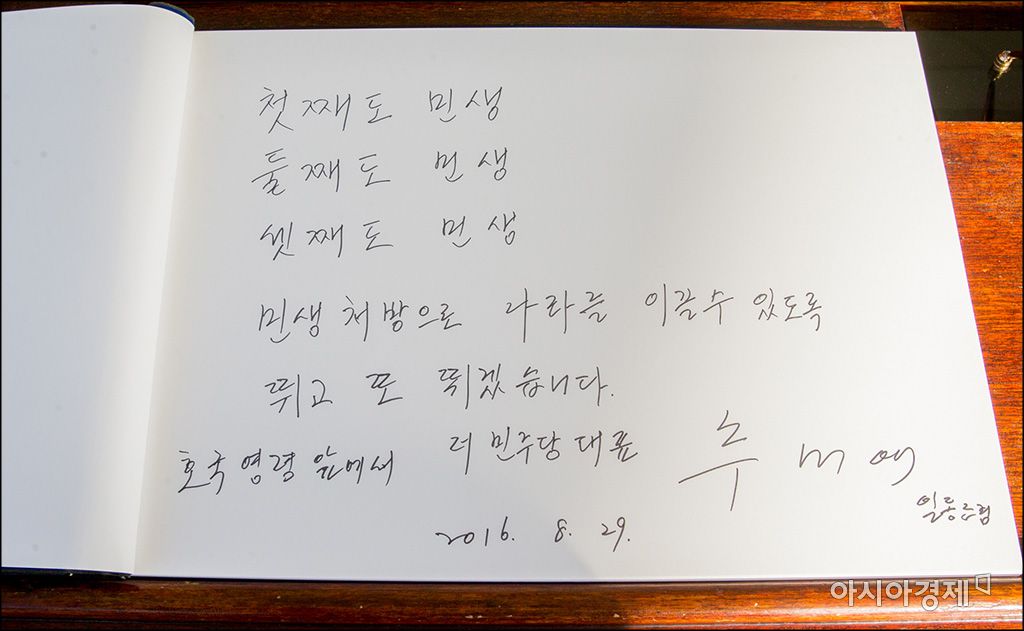 첫째도 민생
둘째도 민생
셋째도 민생
민생처방으로 나라를 이끌수 있도록
뛰고 또 뛰겠습니다.
호국영령 앞에서 더민주당대표 추미애
2016. 8. 29.
아시아경제